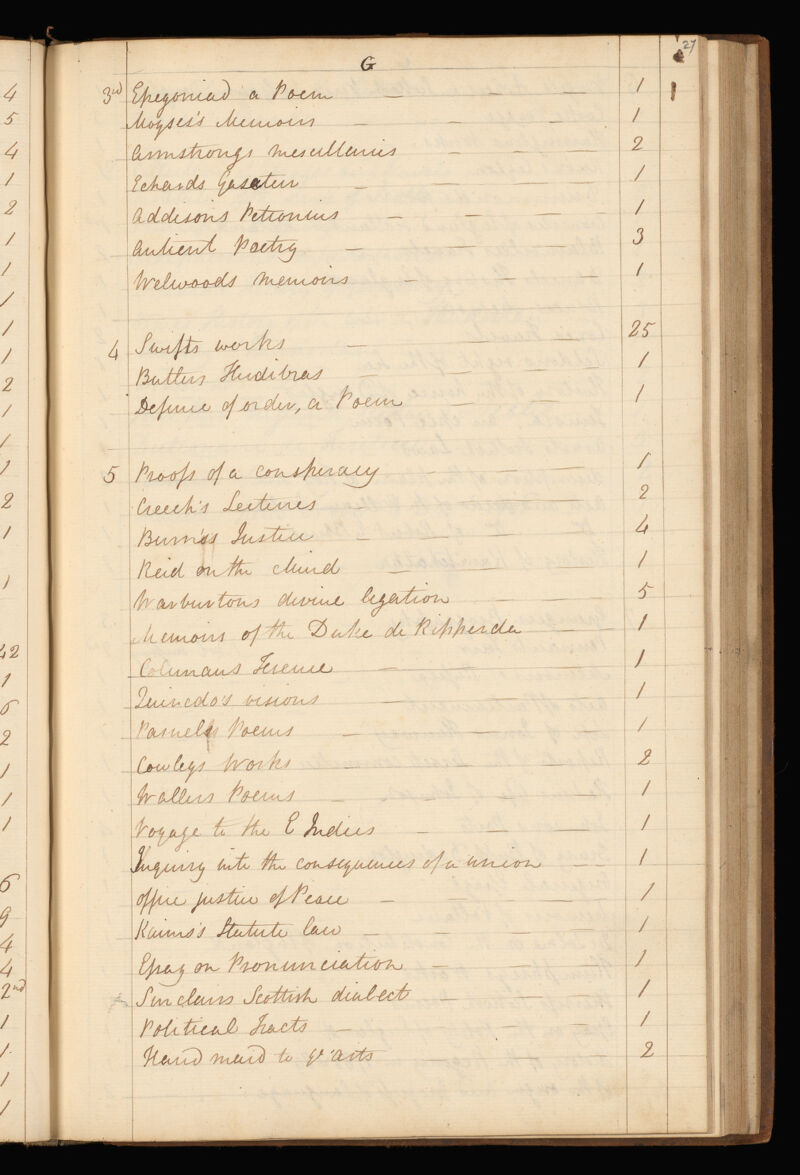 27
G
3rd Epegoniad a Poem 1
Moyses's Memoirs 1
Armstrongs mescellanies 2
Echards Gasateer 1
Addisons Petronius 1
Antient Poetry 3
Welwoods memoirs 1
4 Swifts works 25
Butlers Hudibras 1
Defence of order, a Poem 1
5 Proofs of a conspiracy 1
Creech's Lectures 2
Burn's Justice 4
Reid on the Mind 1
Warburtons divine legation 5
Memoirs of the Duke de Ripperda 1
Colmans Terence 1
Quevedo's visions 1
Parnels Poems 1
Cowleys Works 2
Wallers Poems 1
Voyage to the E Indies 1
Inquiry into the consequences of a union 1
office justice of Peace 1
Kaims's Statute law 1
Essay on Pronunciation 1
Sinclairs Scottish dialect 1
Political Tracts 1
Hand maid to ye arts 2
4
5
4
1
2
1
1
1
1
1
2
1
1
1
2
1
1
42
1
6
2
1
1
1
6
9
4
4
2nd
1
1
1
1